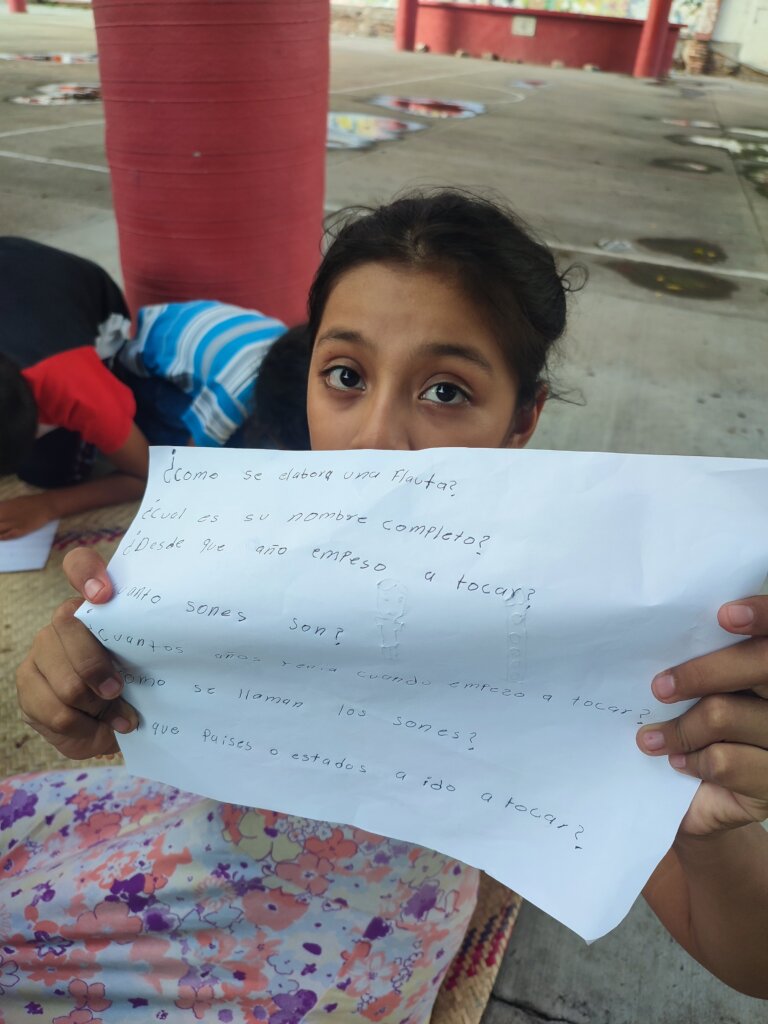 ¿Como se elabora una Flauta?
¿Cual es su nombre completo?
¿Desde que año empeso a tocar?
uanto sones son?
¿Cuantos años tenia cuando empezo a tocar?
omo se llaman los sones?
que Paises o estados a ido a tocar?